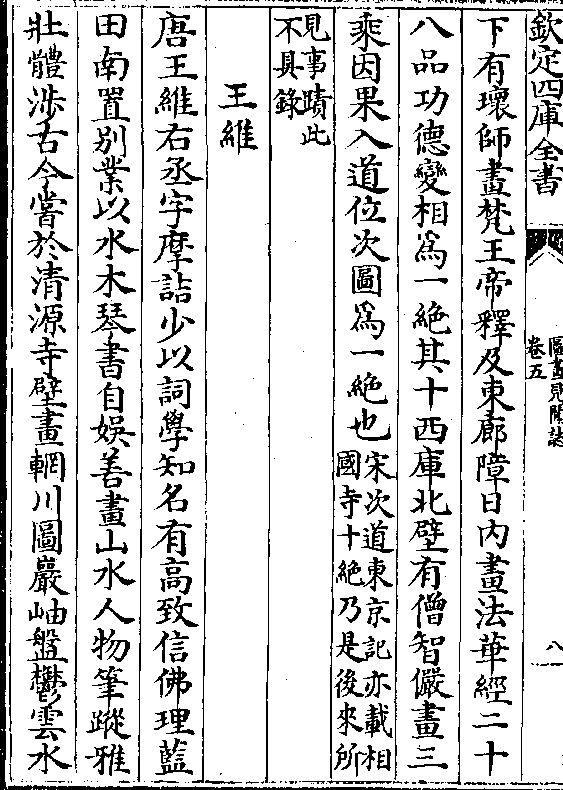 欽定四庫全書
圖畫見聞誌
卷五
八
下有瓌師畫梵王帝釋及東廊障日内畫法華經二十
八品功德變相爲一絶其十西庫北壁有僧智儼畫三
乘因果入道位次圖爲一絶也宋次道東京記亦載相
國寺十絶乃是後來所
見事蹟此
不具錄
王維
唐王維右丞字摩詰少以詞學知名有高致信佛理藍
田南置别業以水木琴書自娱善畫山水人物筆蹤雅
壯體涉古今嘗於清源寺壁畫輞川圖巖岫盤鬱雲水